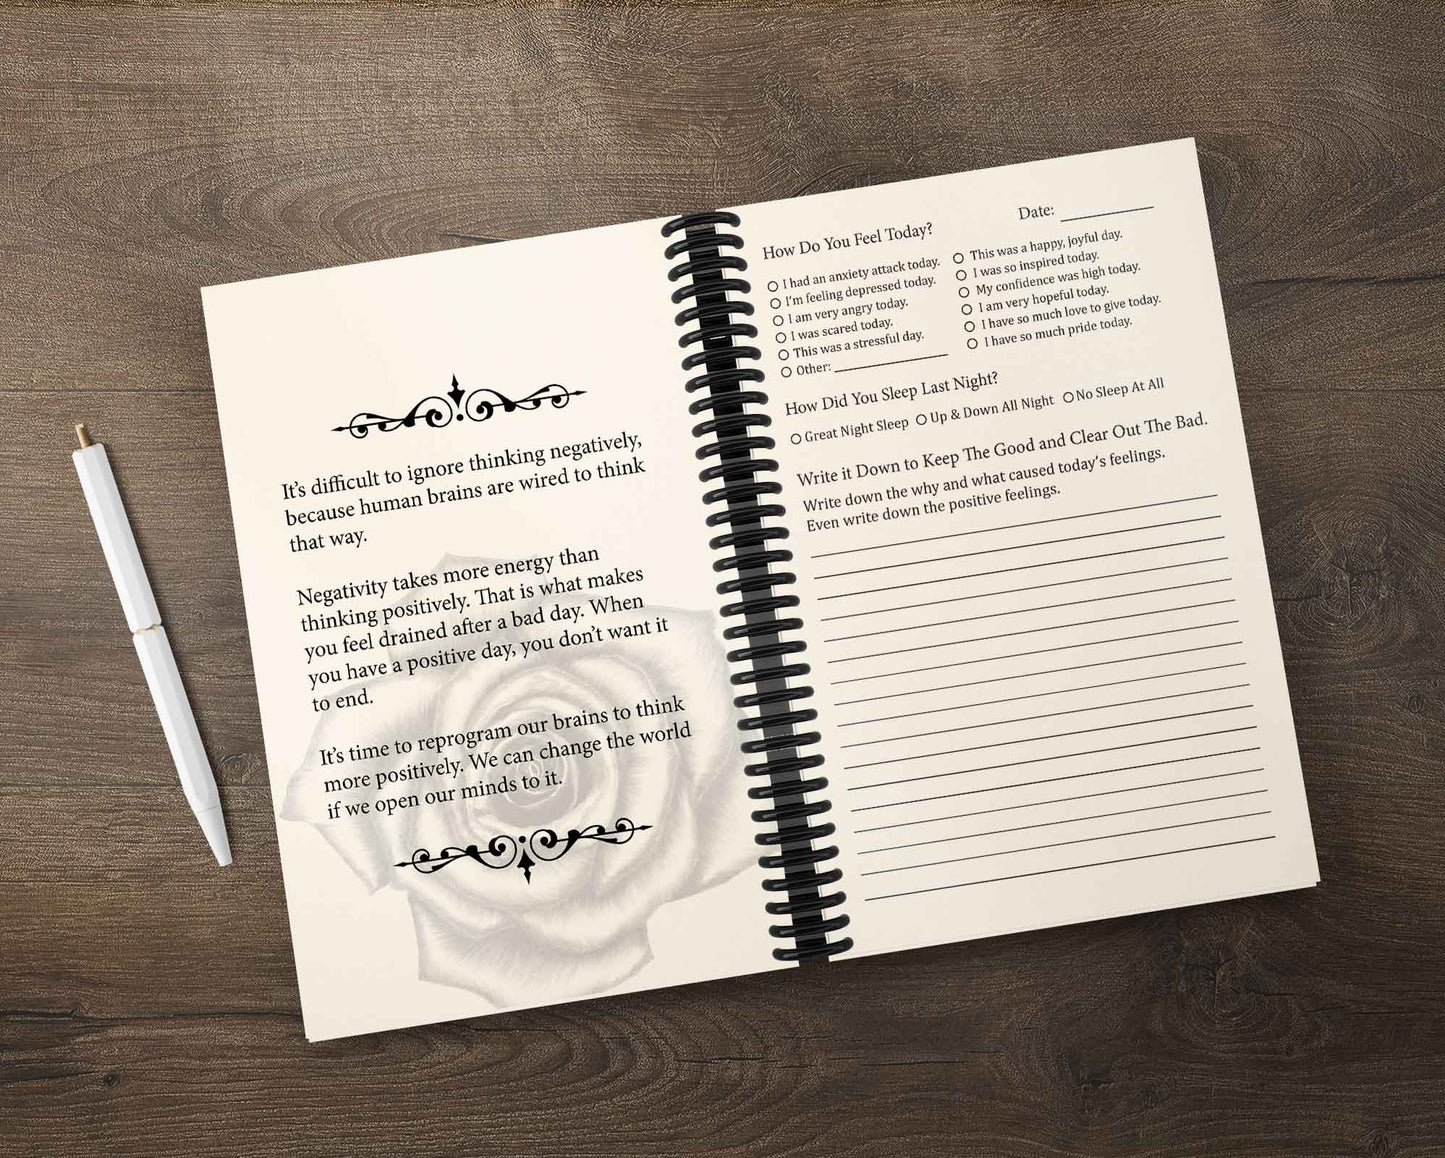 It's difficult to ignore thinking negatively,
because human brains are wired to think
that way.
Negativity takes more energy than
thinking positively. That is what makes
you feel drained after a bad day. When
you have a positive day, you don't want it
to end.
It's time to reprogram our brains to think
more positively. We can change the world
if we open our minds to it.
Date:
How Do You Feel Today?
I had an anxiety attack today.
I'm feeling depressed today.
I am very angry today.
I was scared today.
This was a stressful day.
Other:
This was a happy, joyful day.
I was so inspired today.
My confidence was high today.
I am very hopeful today.
I have so much love to give today.
I have so much pride today.
How Did You Sleep Last Night?
Great Night Sleep Up & Down All Night No Sleep At All
Write it Down to Keep The Good and Clear Out The Bad.
Write down the why and what caused today's feelings.
Even write down the positive feelings.